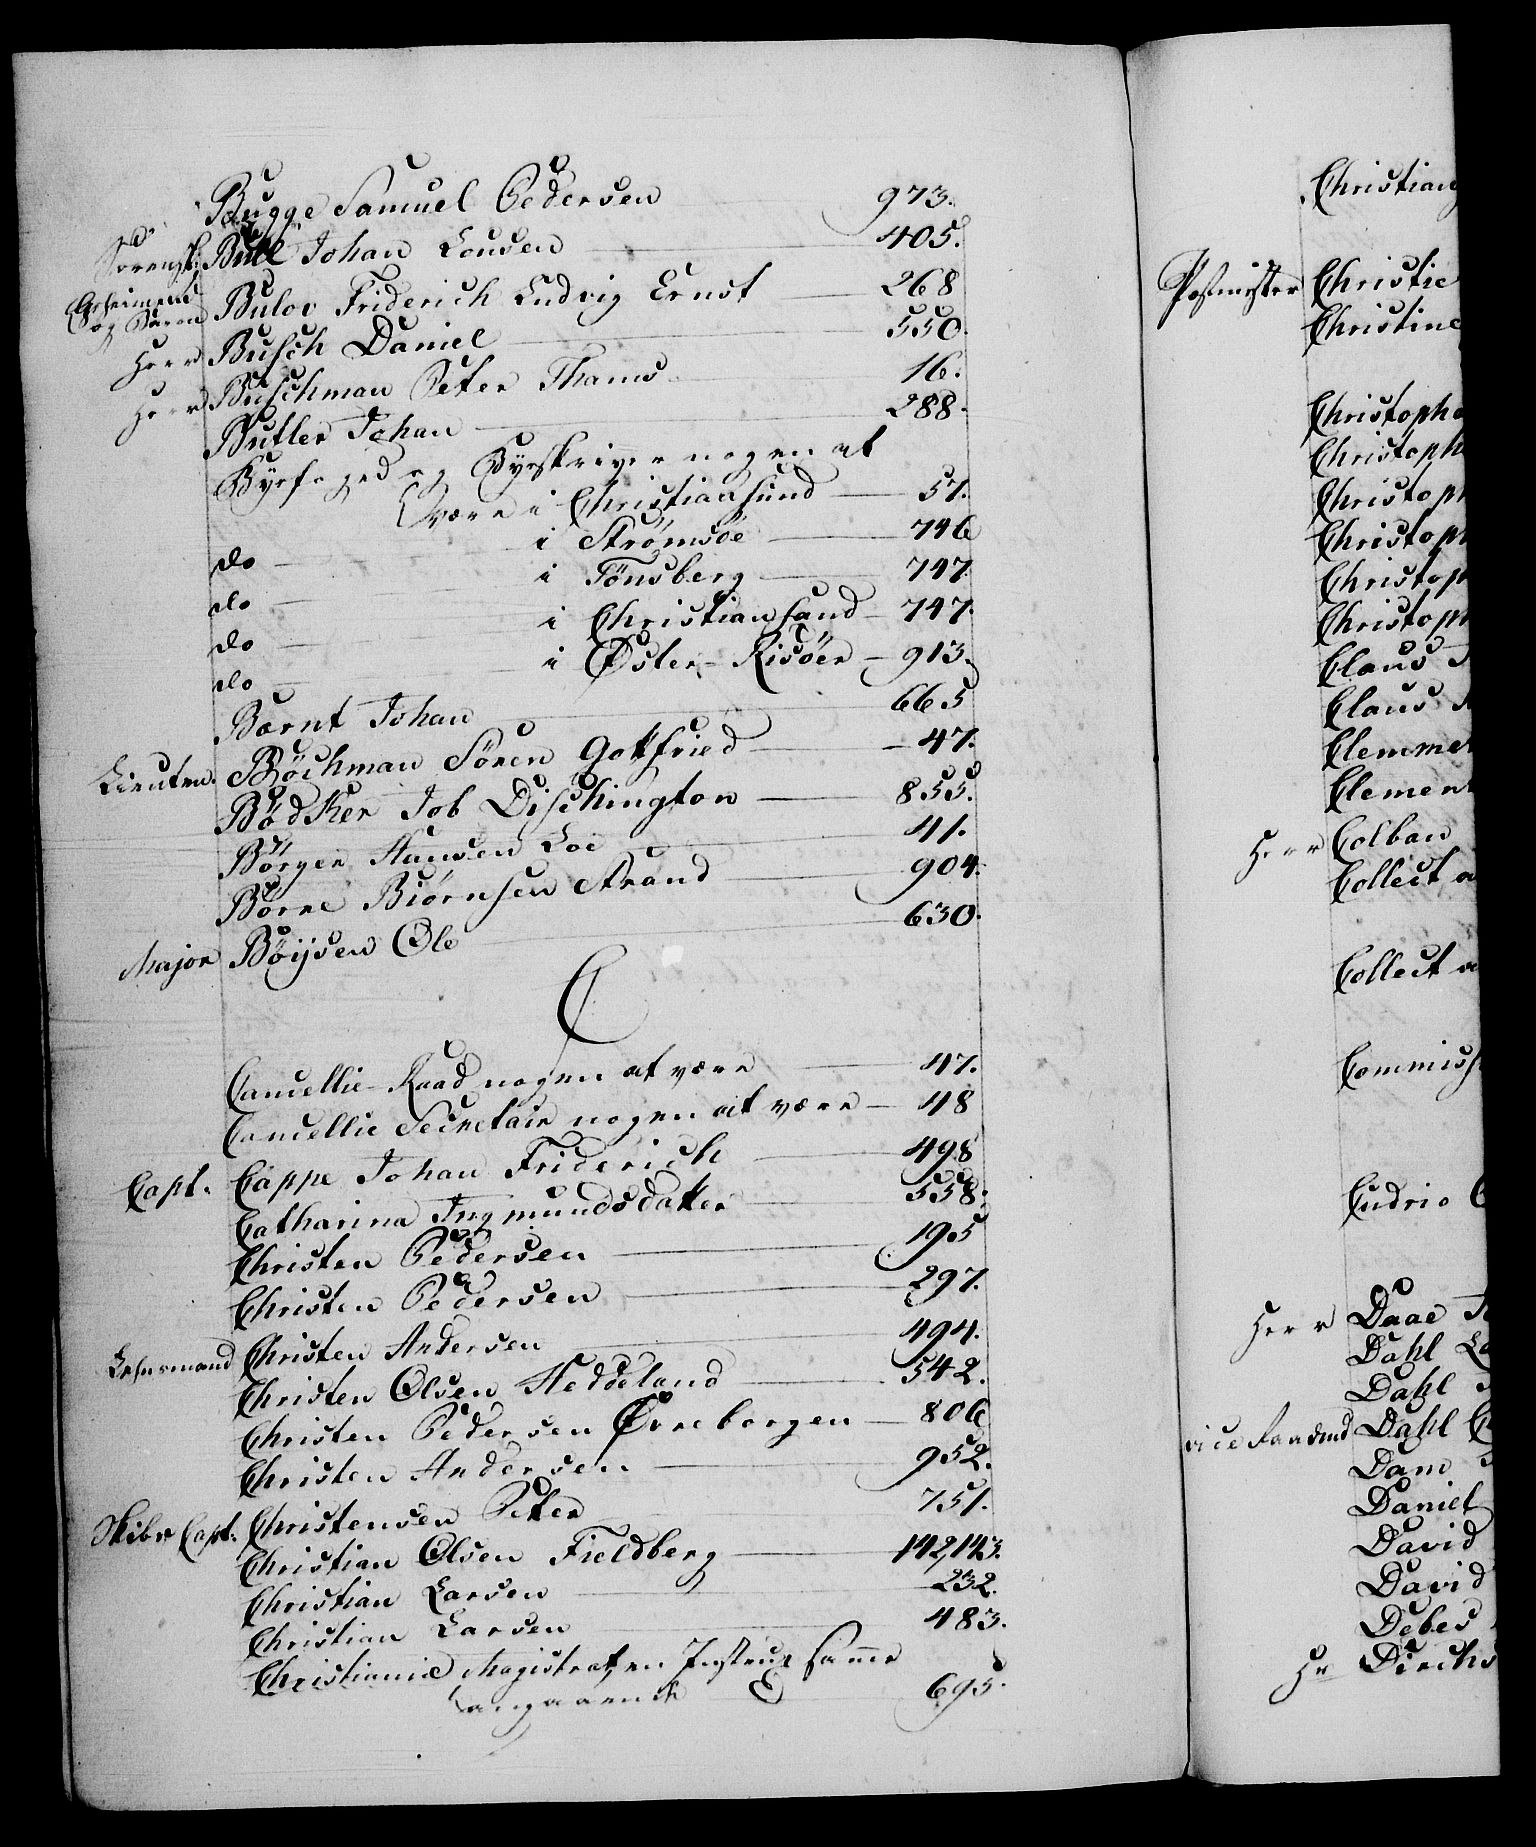 Bugge Samuel Pedersen 973.
Sorensk: Bull Johan Lousen 405.
Geheimerd og Baron Bulov Friderich Ludvig Ernst 268
Herr Busch Daniel 550.
Herr Buschman Peter Thams 16.
Butler Johan 288.
Byefoged og Byeskriver nogen at
være i Christiansund 51.
do i Strømsøe 746
do i Tönsberg 747.
do i Christiansand 747.
do i Øster-Risöer 913.
Bærnt Johan 665
Lieuten. Böchman Sören Gottfried 47.
Bödker Job Dischington 855.
Börger Hansen Loe 41.
Börre Biörnsen Strand 904.
Major Böijsen Ole 630.
C
Cancellie-Raad nogen at være 47.
Cancellie Secretair nogen at være 48
Capt. Cappe Johan Friderich 498
Catharina Ingmundsdatter 558.
Christen Pedersen 195
Christen Pedersen 297.
Lehnsmand Christen Andersen 494.
Christen Olsen Heddeland 542.
Christen Pedersen Ørreborgen 806
Christen Andersen 952.
Skibs Capt: Christensen Peter 751.
Christian Olsen Fieldberg 142,143.
Christian Larsen 232.
Christian Larsen 483.
Christianiæ Magistraten Instrux samme
angaaende 695.
Christian
Postmester Christie
Christine
Christophe
Christoph
Christoph
Christoph
Christoph
Christoph
Claus
Claus
Clemme
Clement
Herr Colban
Collect a
Collect a
Commiss
Cudrio
Herr Daae
Dahl La
Dahl
vice Raadmd Dahl
Dam
Daniel
David
David
Debes
Hr Dirchs